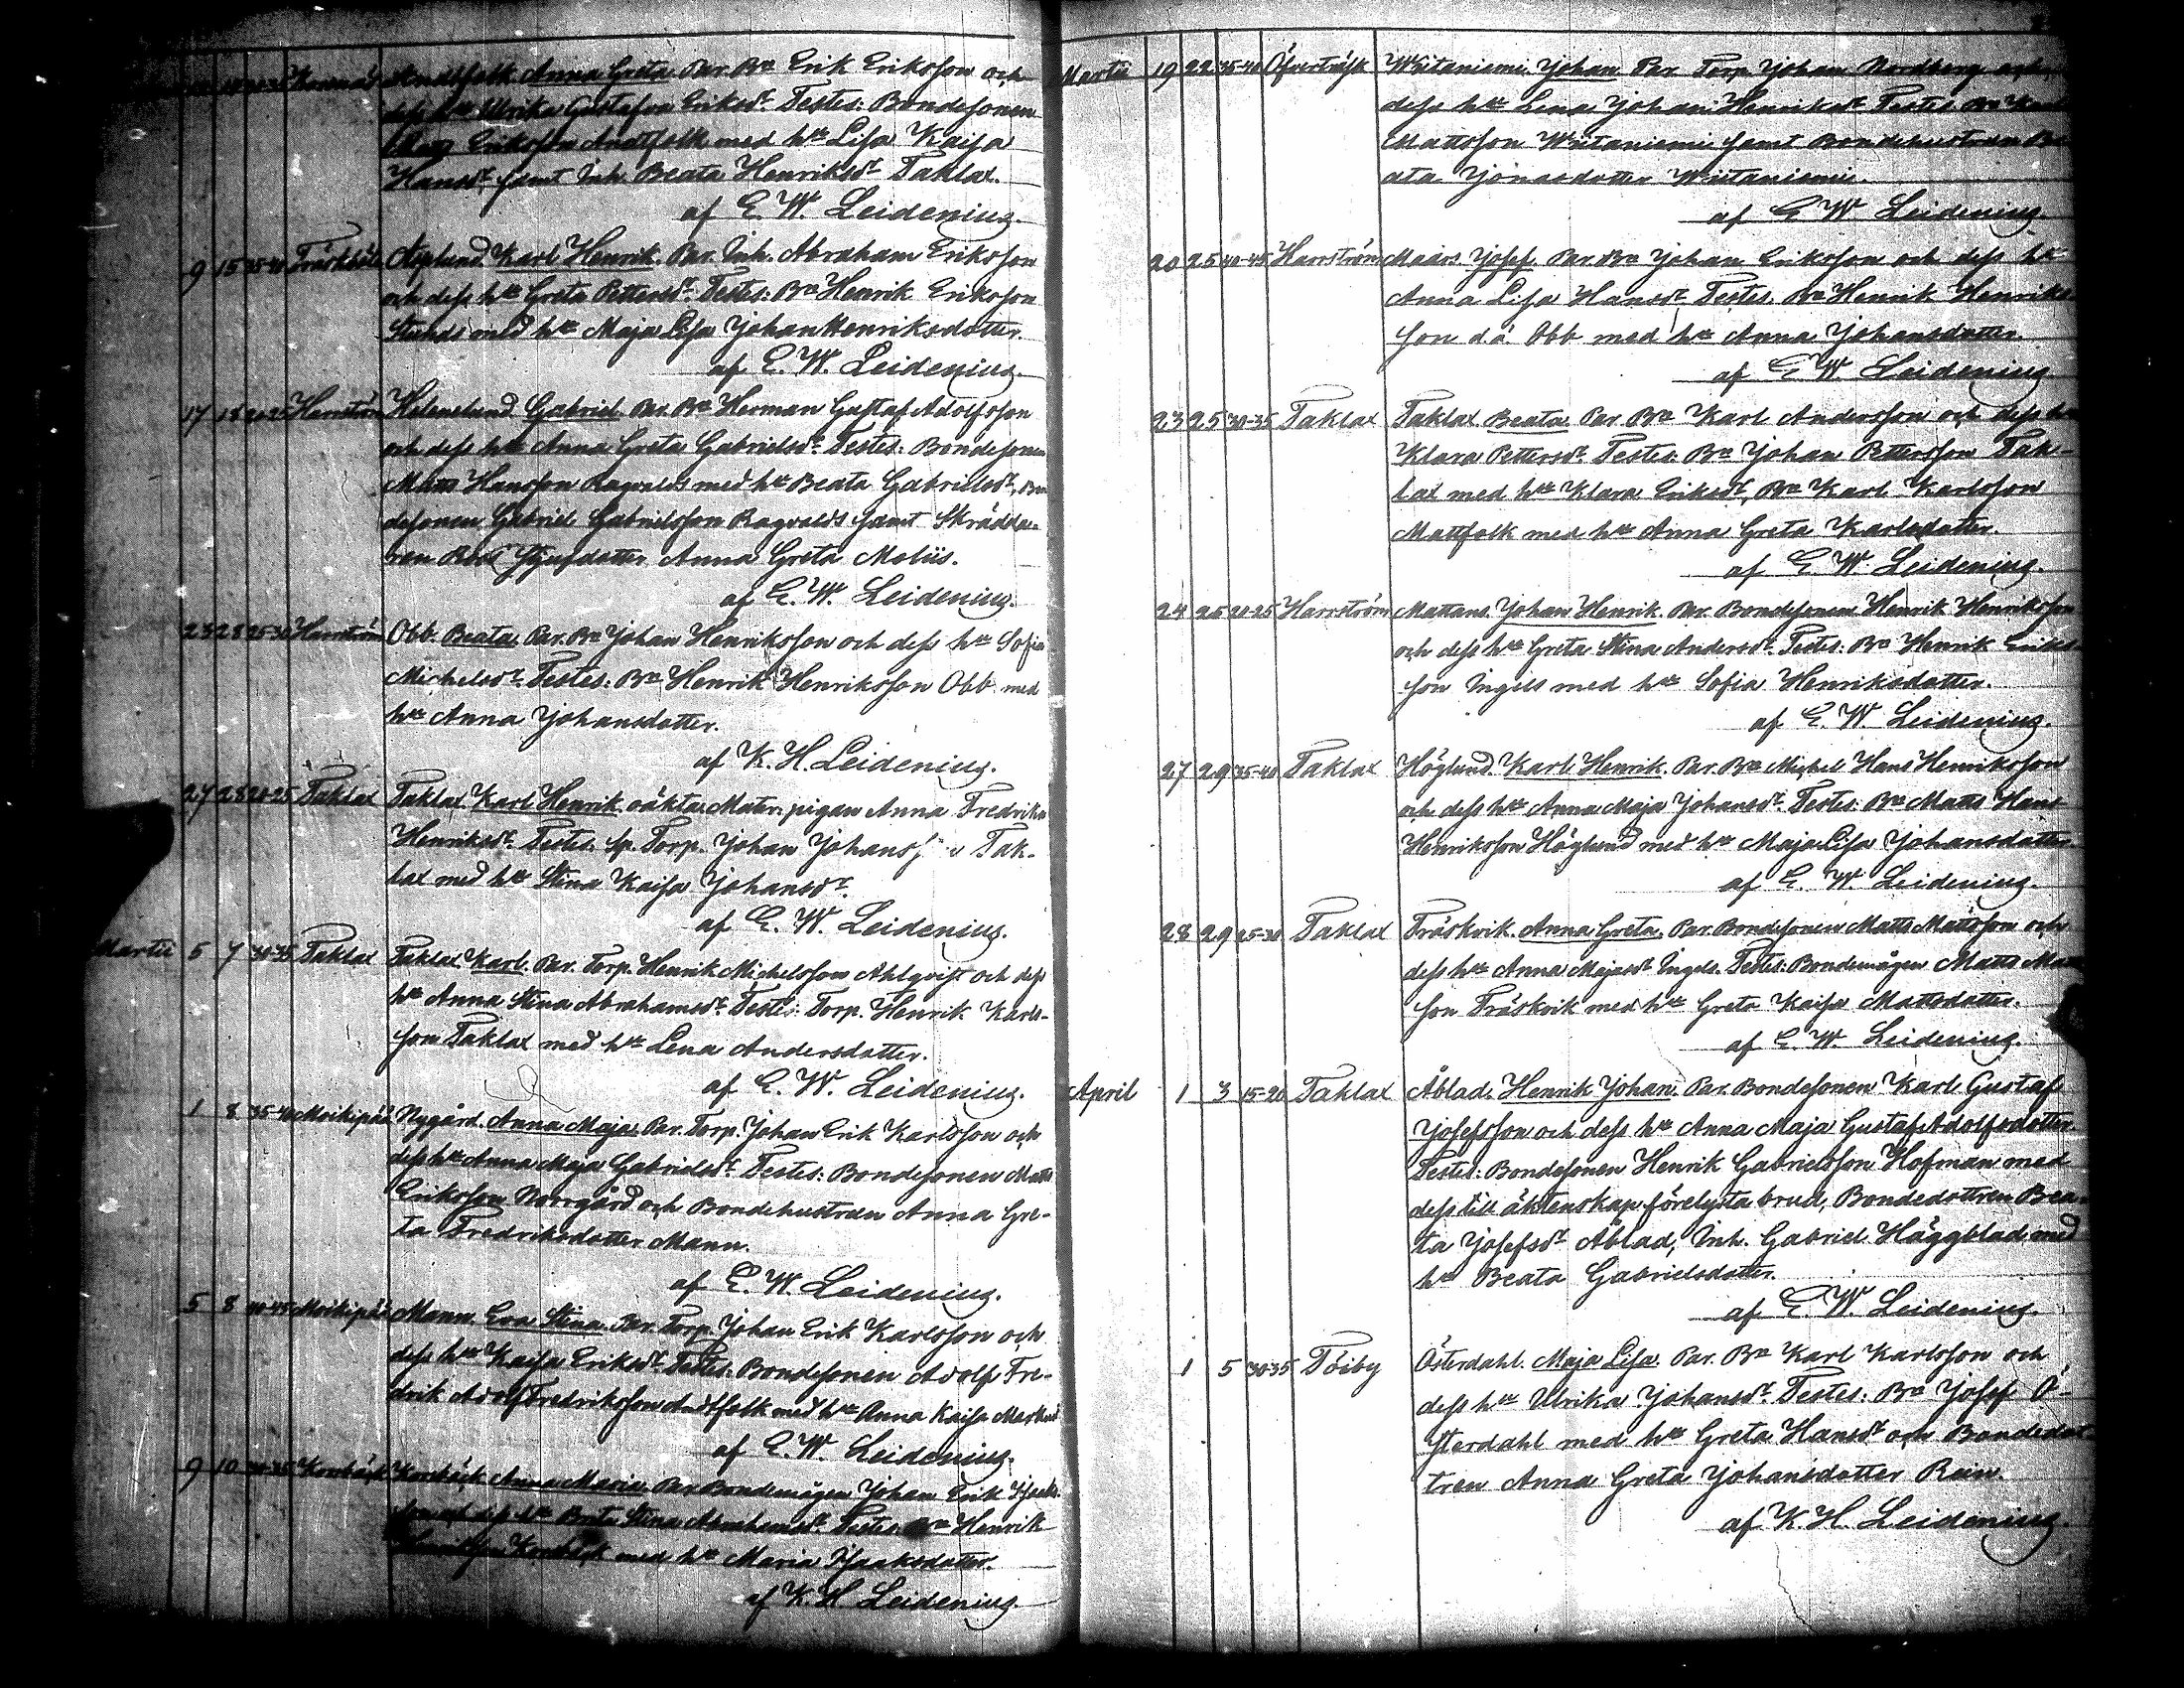 Andtfolk. Anna Greta. Par. Bn Erik Eriksson och
dess hu Ulrika Gustafva Eriksdr. Testes: Bondesonen
Mats Eriksson Andtfolk med hu Lisa Kaisa
Hansdr samt Inh. Beata Henriksdr Taklax.
af E. W. Leidenius.
9 15 35-40 Träskböle Asplund. Karl Henrik. Par. Inh. Abraham Eriksson
och dess hu Greta Pettersdr. Testes: Bn Henrik Eriksson
Stunds med hu Maja Lisa Johan Henriksdotter.
af E. W. Leidenius.
17 18 20-25 Harrström Helenelund. Gabriel. Par. Bn Herman Gustaf Adolfsson
och dess hu Anna Greta Gabrielsdr. Testes: Bondesonen
Mats Hansson Ragvalds med hu Beata Gabrielsdr, Bon
desonen Gabriel Gabrielsson Ragvalds samt Skrädda-
ren Styfdotter Anna Greta Moliis.
af E. W. Leidenius.
23 28 25-30 Harrström Obb. Beata. Par. Bn Johan Henriksson och dess hu Sofia
Michelsdr. Testes: Bn Henrik Henriksson Obb med
hu Anna Johansdotter.
af K. H. Leidenius.
27 28 20-25 Taklax Taklax. Karl Henrik. oäkta. Mater. pigan Anna Fredrika
Henriksdr. Testes. Sp. Torp. Johan Johanss Tak-
lax med hu Stina Kaisa Johansdr.
af E. W. Leidenius.
Martii 5 7 30-35 Taklax Taklax Karl. Par. Torp. Henrik Michelsson Ahlqvist och dess
hu Anna Stina Abrahamsdr. Testes: Torp. Henrik Karls-
son Taklax med hu Lena Andersdotter.
af E. W. Leidenius.
1 8 35-40 Moikipää Nygård. Anna Maja. Par. Torp. Johan Erik Karlsson och
dess hu Anna Maja Gabrielsdr. Testes: Bondesonen Matts
Eriksson Norrgård och Bondehustrun Anna Gre-
ta Fredriksdotter Mann.
af E. W. Leidenius.
5 8 40-45 Moikipää Mann. Eva Stina. Par. Torp. Johan Erik Karlsson och
dess hu Kaisa Eriksdr. Testes: Bondesonen Adolf Fre-
drik Adolf Fredriksson Andtfolk med hu Anna Kaisa
af E. W. Leidenius.
9 10 30-35 Korsbäck Korsbäck, Anna Maria. Par. Bondemågen Johan Erik Isaks-
son och dess hu Brita Stina Abrahamsdr. Testes: Bn Henrik
Korsbäck med hu Maria Isaksdotter.
af K. H. Leidenius.
Martii 19 22 35-40 Öfverträsk Wiitaniemi. Johan Par. Torp. Johan Nordberg och
dess hu Lena Johan Henriksdr. Testes. Bn Karl
Mattsson Wiitaniemi samt Bondehustrun Be
ata Jonasdotter Wiitaniemi.
af E. W. Leidenius.
20 25 40-45 Harrström Maars. Josef. Par. Bn Johan Eriksson och dess hu
Anna Lisa Hansdr. Testes. Bn Henrik Henriks-
son d.ä. Obb med hu Anna Johansdotter.
af E. W. Leidenius.
23 25 30-35 Taklax Taklax Beata. Par. Bn Karl Andersson och dess hu
Klara Pettersdr. Testes: Bn Johan Pettersson Tak-
lax med hu Klara Eriksdr, Bn Karl Karlsson
Mattfolk med hu Anna Greta Karlsdotter.
af E. W. Leidenius.
24 25 20-25 Harrström Mattans. Johan Henrik. Par. Bondesonen Henrik Henriksson
och dess hu Greta Stina Andersdr. Testes: Bn Henrik Eriks-
son Ingels med hu Sofia Henriksdotter.
af E. W. Leidenius.
27 29 35-40 Taklax Höglund. Karl Henrik. Par. Bn Michel Hans Henriksson
och dess hu Anna Maja Johansdr. Testes: Bn Matts Hans
Henriksson Höglund med hu Maja Lisa Johansdotter.
af E. W. Leidenius.
28 29 25-30 Taklax Träskvik. Anna Greta. Par. Bondesonen Matts Mattsson och
dess hu Anna Majasdr Ingels. Testes: Bondemågen Matts
son Träskvik med hu Greta Kaisa Mattsdotter.
af E. W. Leidenius.
April 1 3 15-20 Taklax Åblad. Henrik Johan. Par. Bondesonen Karl Gustaf
Josefsson och dess hu Anna Maja Gustaf Adolfsdotter.
Testes: Bondesonen Henrik Gabrielsson Hofman med
dess till äktenskap förelysta brud, Bondedottren Bea-
ta Josefsdr Åblad, Inh. Gabriel Häggblad med
hu Beata Gabrielsdotter.
af E. W. Leidenius
1 5 30-35 Töiby Österdahl. Maja Lisa. Par. Bn Karl Karlsson och
dess hu Ulrika Johansdr. Testes: Bn Josef Ö-
sterdahl med hu Greta Hansdr och Bondedot-
tren Anna Greta Johansdotter Rein.
af K. H. Leidenius.